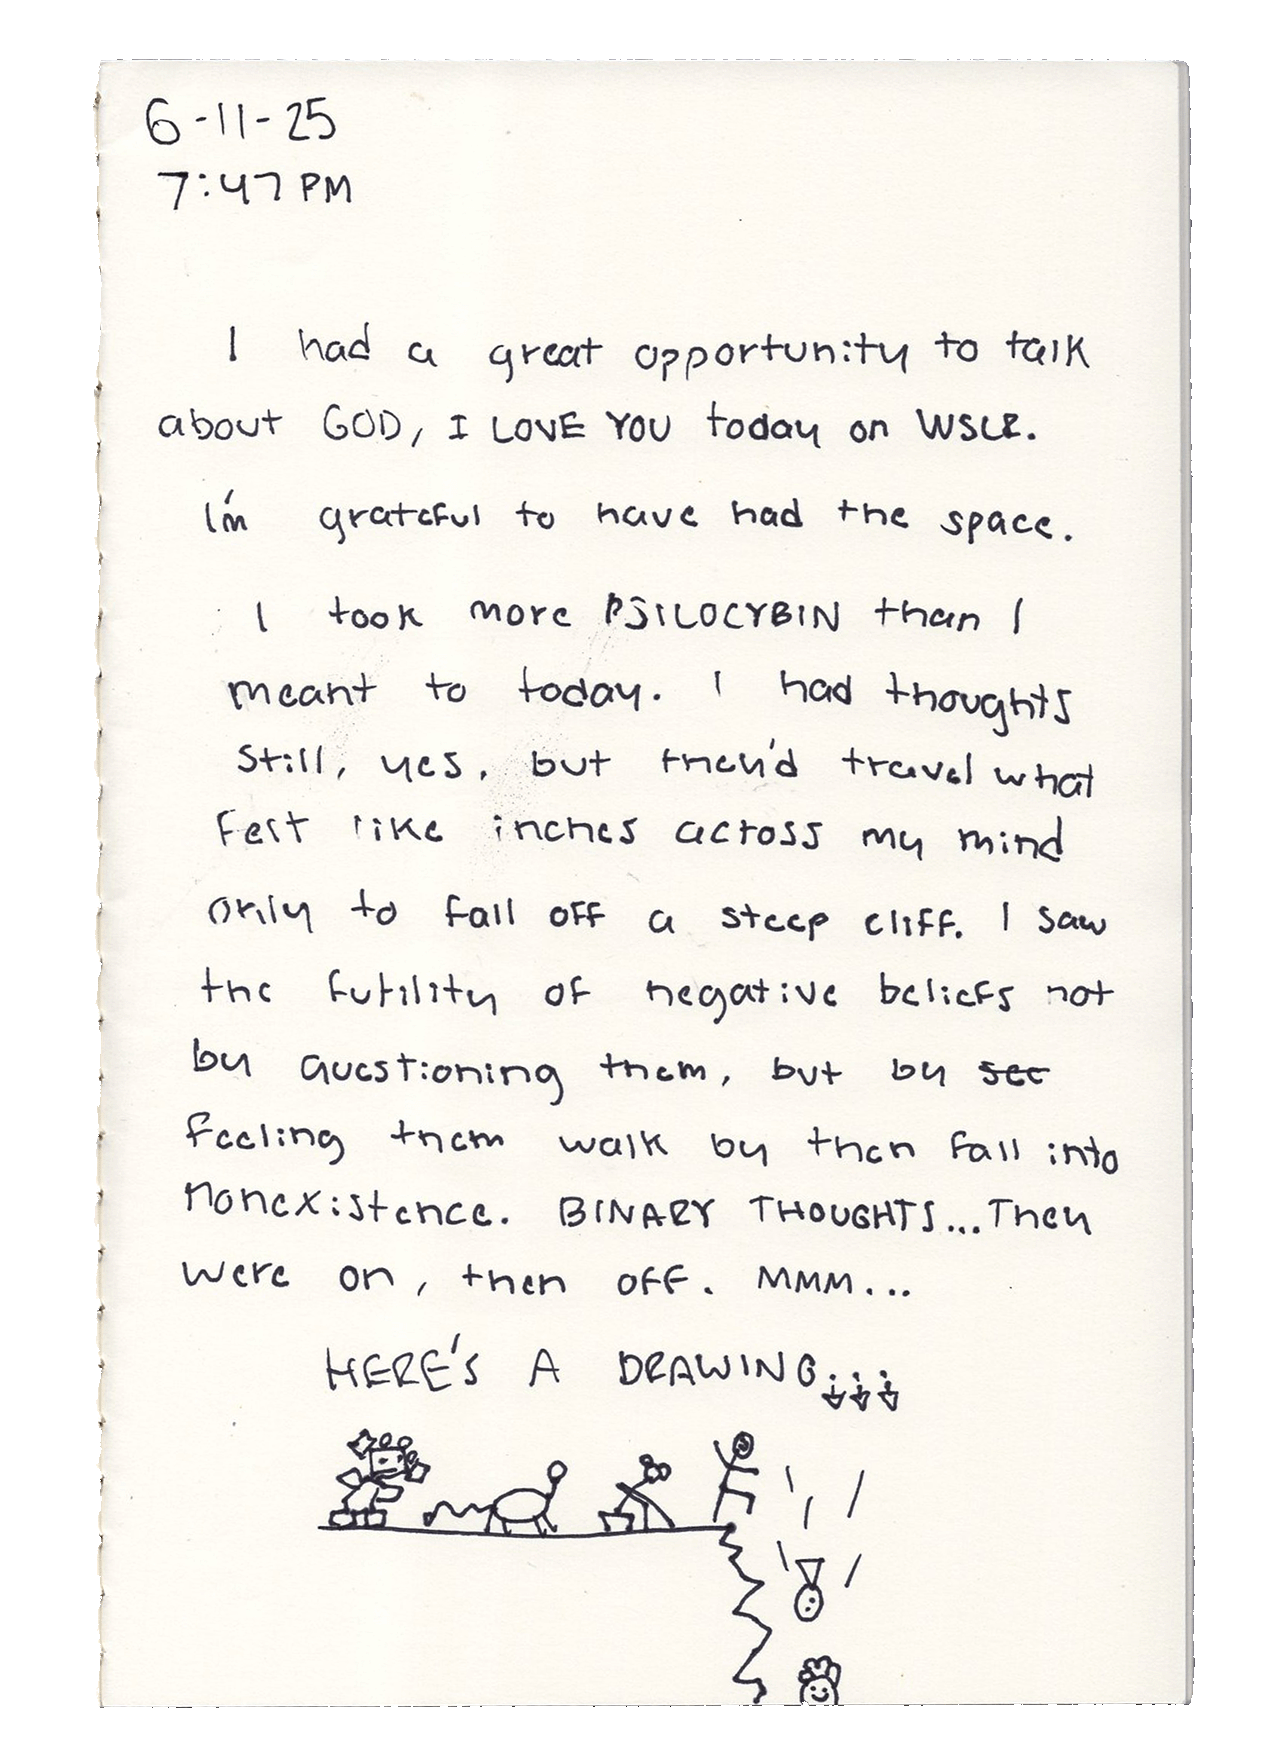 6-11-25
7:47 PM
I had a great opportunity to talk
about GOD, I LOVE YOU today on WSLR.
I'm grateful to have had the space.
I took more PSILOCYBIN than I
meant to today. I had thoughts
still, yes, but they'd travel what
felt like inches across my mind
only to fall off a steep cliff. I saw
the futility of negative beliefs not
by questioning them, but by see
feeling them walk by then fall into
nonexistence. BINARY THOUGHTS... They
were on, then off. MMM...
HERE'S A DRAWING...